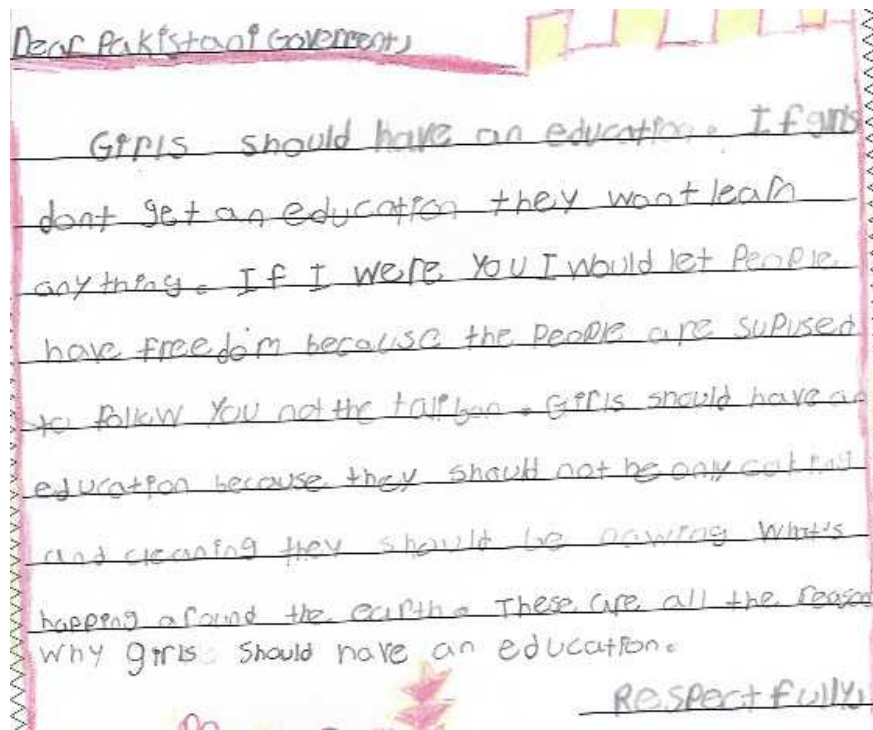 Dear Pakistani Goverment,
Girls should have an education. If girls
dont get an education they wont learn
any thing. If I were You I would let People
have freedom because the People are supused
to follow You not the taliban. Girls should have an
education because they should not be only
and cleaning they should be nowing What's
happing around the earth. These are all the reason
why girls should have an education.
Respectfully,